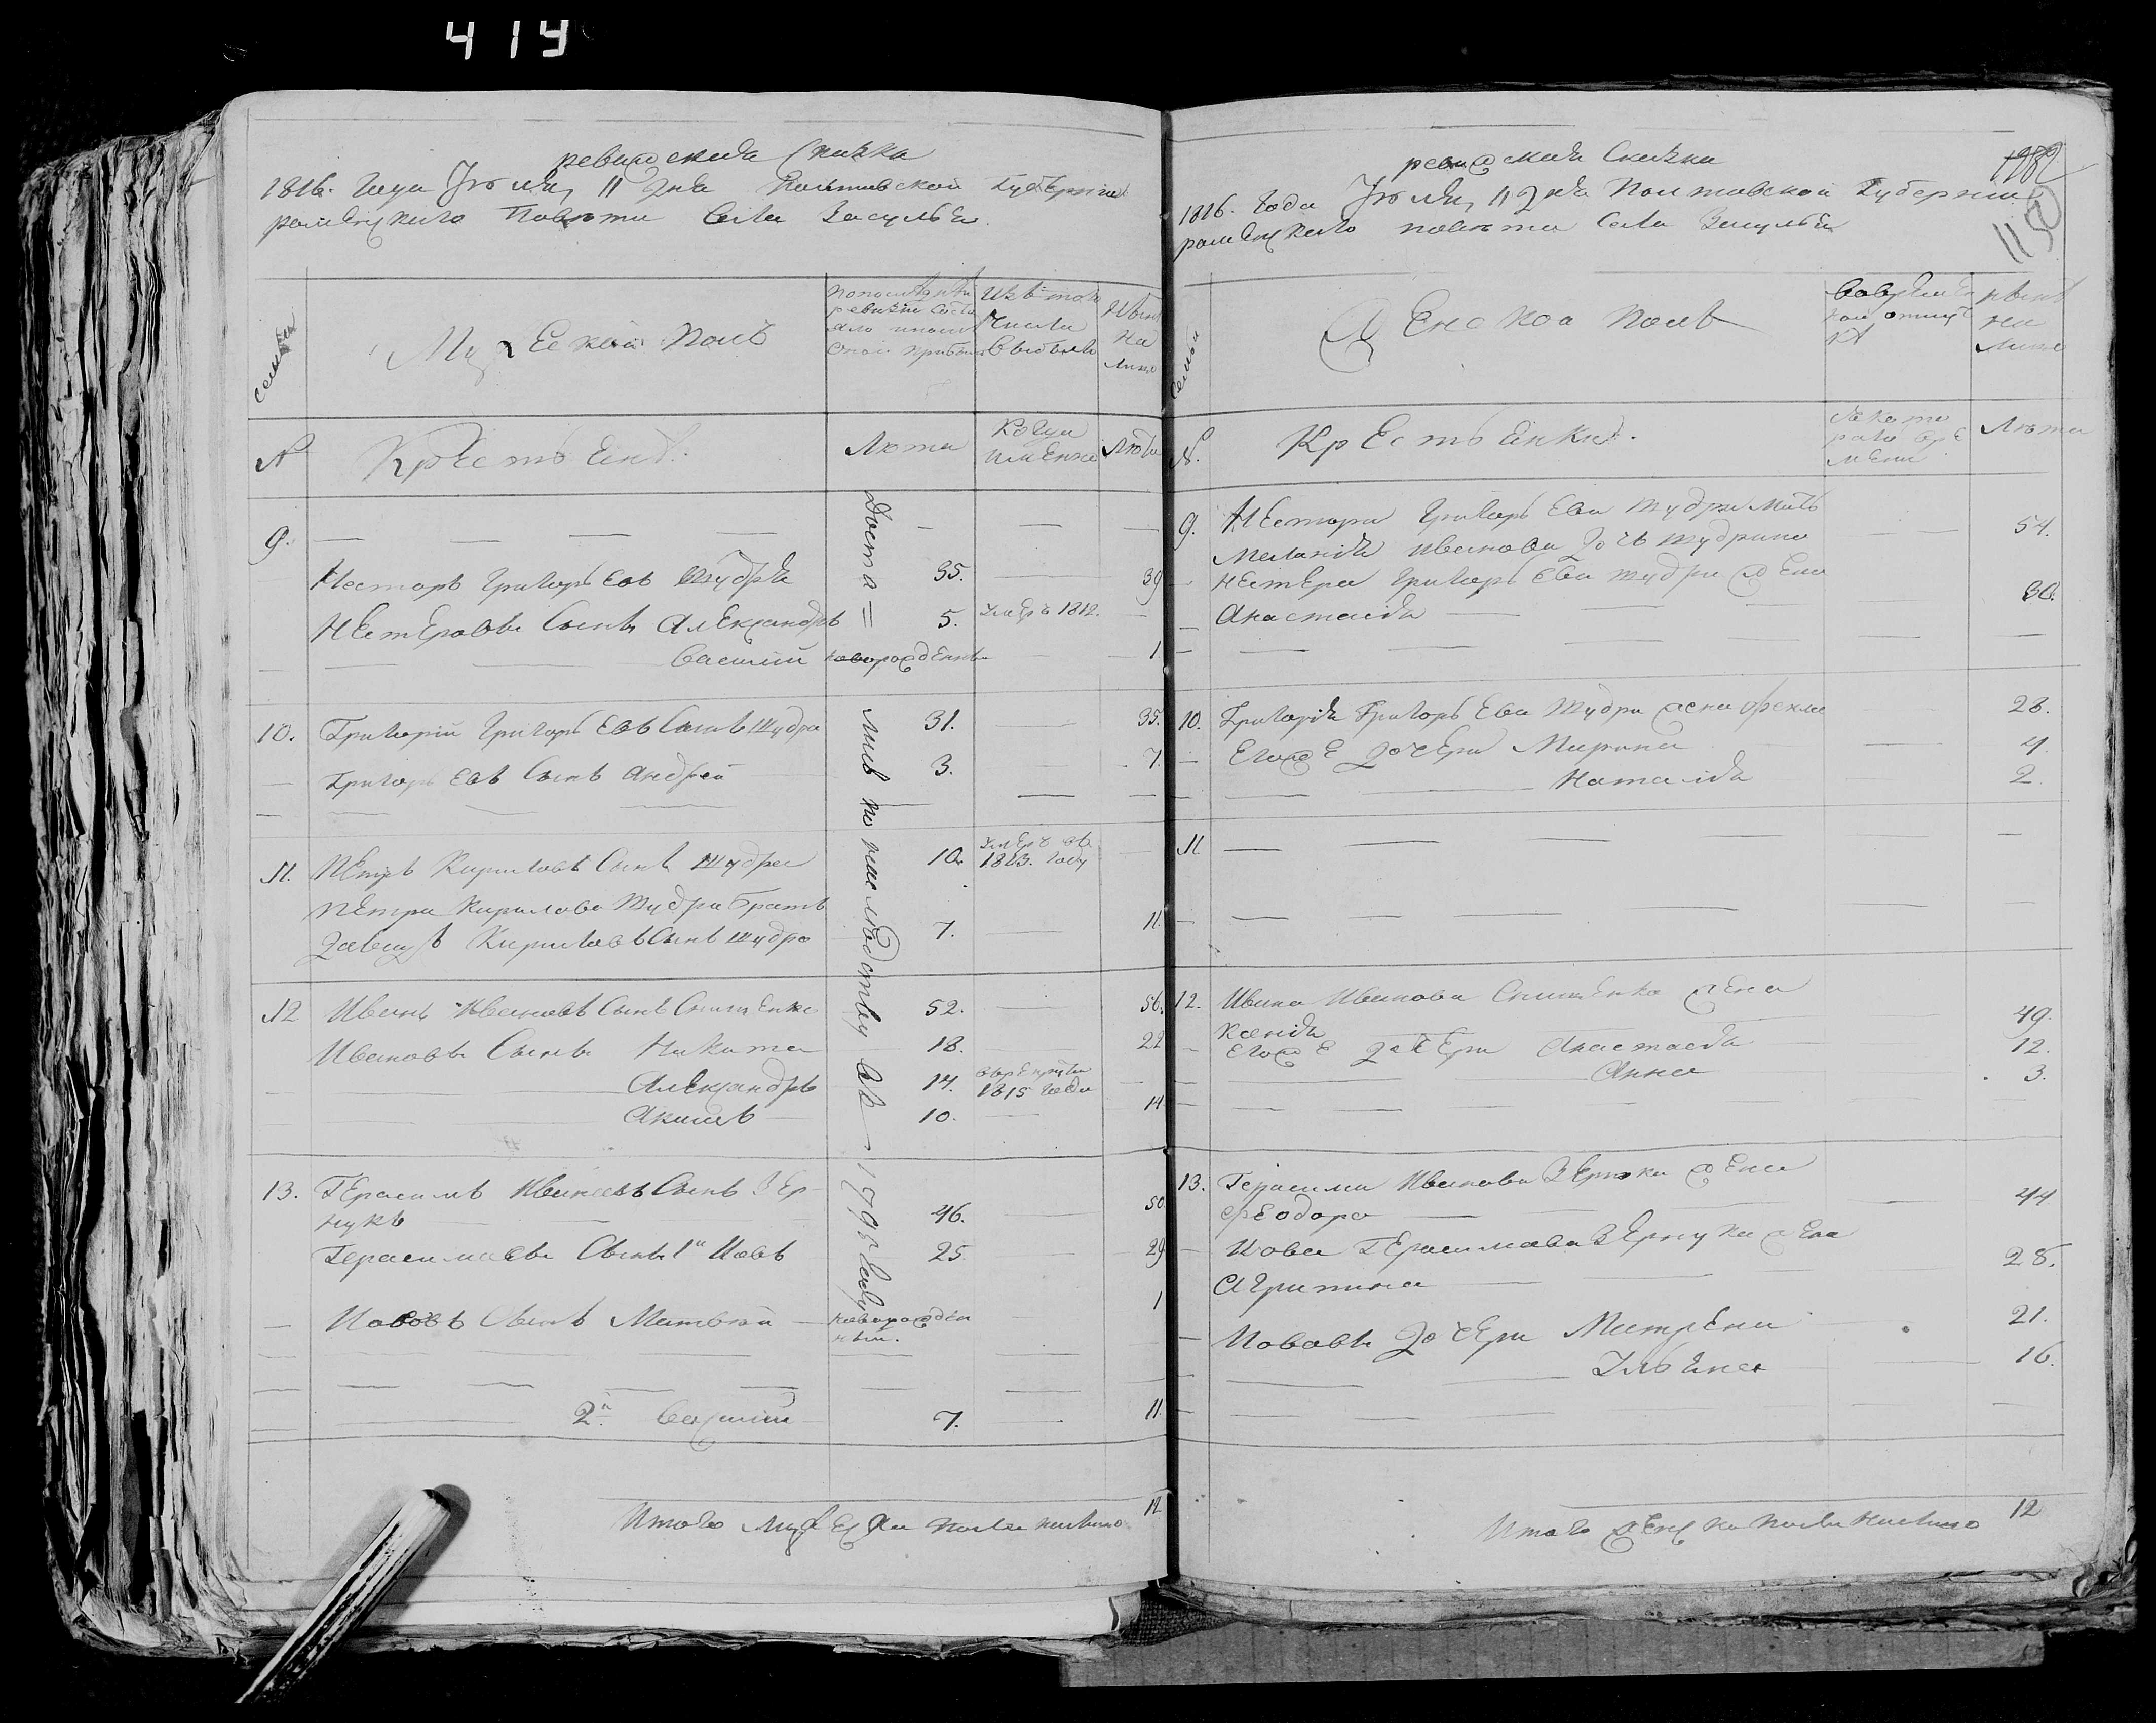 419
ревижская Сказка
1816. Года Июля, 11 Дня Полтавской Губернии
роменского Повета Села Засулья
семьи
Мужеской полъ
По последней
ревизии состо
яло и после
оной прибыло
Изъ того
числа
выбыло
Ныне
на
лицо
№
Крестьяне.
Лета
Когда
именно
Лета
Достались по наследству въ 1795 Году
9.
Несторъ Григорьевъ Шудра 35. 39
Нестеровы Сыны Александръ 5. Умеръ 1812.
Василий новорожденъ 1
10. Григорий Григорьевъ Сынъ Шудра 31. 35.
Григорьевъ Сынъ Андрей 3. 7.
11. Петръ Кириловъ Сынъ Шудра 10. Умеръ въ 1813. Году
Петра Кирилова Шудра Братъ
Давидъ Кириловъ Сынъ Шудра 7. 11.
12 Иванъ Ивановъ Сынъ 52. 56.
Ивановы Сыны Никита 18. 22
Александръ 14. 1815 Года
Акимъ 10. 14
13. Герасимъ Ивановъ Сынъ Зер
нукъ 46. 50
Герасимовы Сыны 1й Иовъ 25 29
Иововъ Сынъ Матвей новорожден
ный. 1
2й Василий 7. 11.
Итого Мужеска пола налицо 12
ревижская Сказка
1816. Года Июля, 11 Дня Полтавской Губернии
роменского повета Села Засулья
1182
1150
семьи
Женской полъ
Во временной отлучке
ныне
на
лицо
№.
Крестьянки.
Съ которого времени
Лета
9. Нестора Григорьева Шудри мать
Мелания Иванова Дочь 54.
Нестера Григорьева Шудри жена
Анастасия 30.
10. Григория Григорьева Шудри жена Фекла 28.
Его же дочери Марина 4.
Наталия 2.
11
12. Ивана Иванова жена
Ксения 49.
Его же дочери Анастасия 12.
Анна 3.
13. Герасима Иванова жена
Феодора 44
Иова Герасимова Зернука жена
Агрипина 28.
Иововы дочери Матрена 21.
Ульяна 16.
Итого женска пола налицо 12